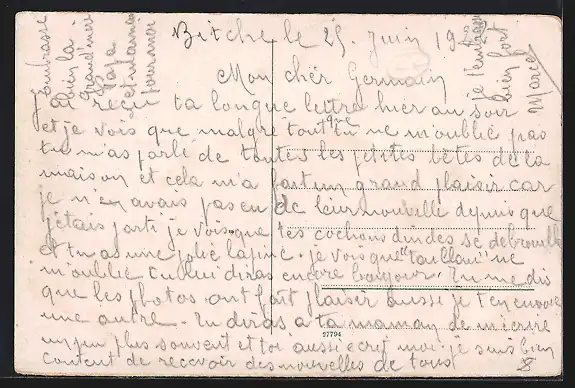 Bitche le 25 Juin 19
Mon chèr Germain
J'ai reçu ta longue lettre hier au soir
et je vois que malgré tout que tu ne m'oublié pas
tu m'as parlé de toutes les petites bêtes de la
maison et cela m'a fait un grand plaisir car
je n'en avais pas eu de leur nouvelle depuis que
j'étais parti je vois que tes cochons d'indes se debrouille
et tu as une jolie lapine. je vois que "taillau" ne
m'oublie tu lui diras encore bonjour. Tu me dis
que les photos ont fait plaisir aussi je t'en envoie
une autre. Tu diras a ta maman de m'écrire
un peu plus souvent et toi aussi ecrit moi je suis bien
content de recevoir des nouvelles de tous
Embrasse
bien la
Grand'mère
Papa
et maman
pour moi
je t'embrasse
bien fort
Marcel
27794